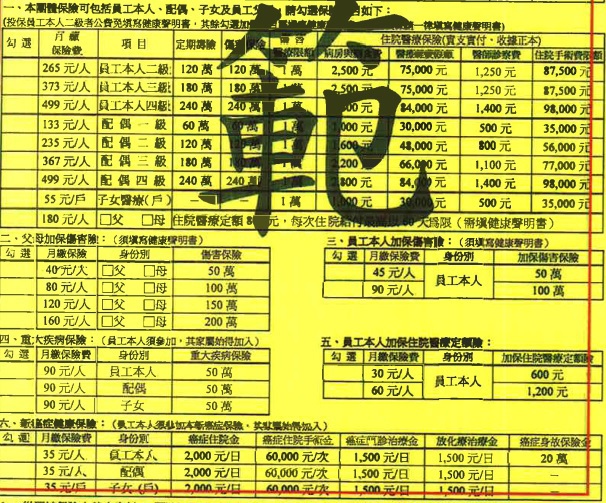 一、本團體保險可包括員工本人、配偶、子女及員工 請勾選保 如下：
(投保員工本人二級者公費免填寫健康聲明書，其餘勾選加 一律填寫健康聲明書)
勾選 月繳保險費 項目 定期壽險 傷 保險 傷害醫療限額 住院醫療保險(實支實付、收據正本)
病房與膳食費 醫療 限額 醫師診察費 住院手術費限額
265元/人 員工本人二級 120萬 120萬 1萬 2,500元 75,000元 1,250元 87,500元
373元/人 員工本人三級 180萬 180萬 1萬 2,500元 75,000元 1,250元 87,500元
499元/人 員工本人四級 240萬 240萬 1萬 84,000元 1,400元 98,000元
133元/人 配偶一級 60萬 60萬 1萬 1,000元 30,000元 500元 35,000元
235元/人 配偶二級 120萬 120 1萬 1,600元 48,000元 800元 56,000元
367元/人 配偶三級 180萬 180 1萬 2,200元 66,000元 1,100元 77,000元
499元/人 配偶四級 240萬 240 1萬 2,800元 84,000元 1,400元 98,000元
55元/戶 子女醫療(戶) － － 1萬 30,000元 500元 35,000元
180元/人 □父 □母 住院醫療定額 元，每次住院給付最高以60天為限（需填健康聲明書）
範
二、父母加保傷害險：(須填寫健康聲明書)
勾選 月繳保險 身份別 傷害保險
40元/次 □父 □母 50萬
80元/人 □父 □母 100萬
120元/人 □父 □母 150萬
160元/人 □父 □母 200萬
三、員工本人加保傷害險：(須填寫健康聲明書)
勾選 月繳保險 身份別 加保傷害保險
45元/人 員工本人 50萬
90元/人 100萬
四、重大疾病保險：(員工本人須參加，其家屬始得加入)
勾選 月繳保險費 身份別 重大疾病保險
90元/人 員工本人 50萬
90元/人 配偶 50萬
90元/人 子女 50萬
五、員工本人加保住院醫療定額險：
勾選 月繳保險費 身份別 加保住院醫療定額險
30元/人 員工本人 600元
60元/人 1,200元
六、新癌症健康保險：(員工本人須參加本新癌症保險，其家屬始得加入)
勾選 月繳保險費 身份別 癌症住院金 癌症住院手術金 癌症門診治療金 放化療治療金 癌症身故保險金
35元/人 員工本人 2,000元/日 60,000元/次 1,500元/日 1,500元/日 20萬
35元/人 配偶 2,000元/日 60,000元/次 1,500元/日 1,500元/日 －
35元/戶 子女(戶) 2,000元/日 60,000元/次 1,500元/日 1,500元/日 －